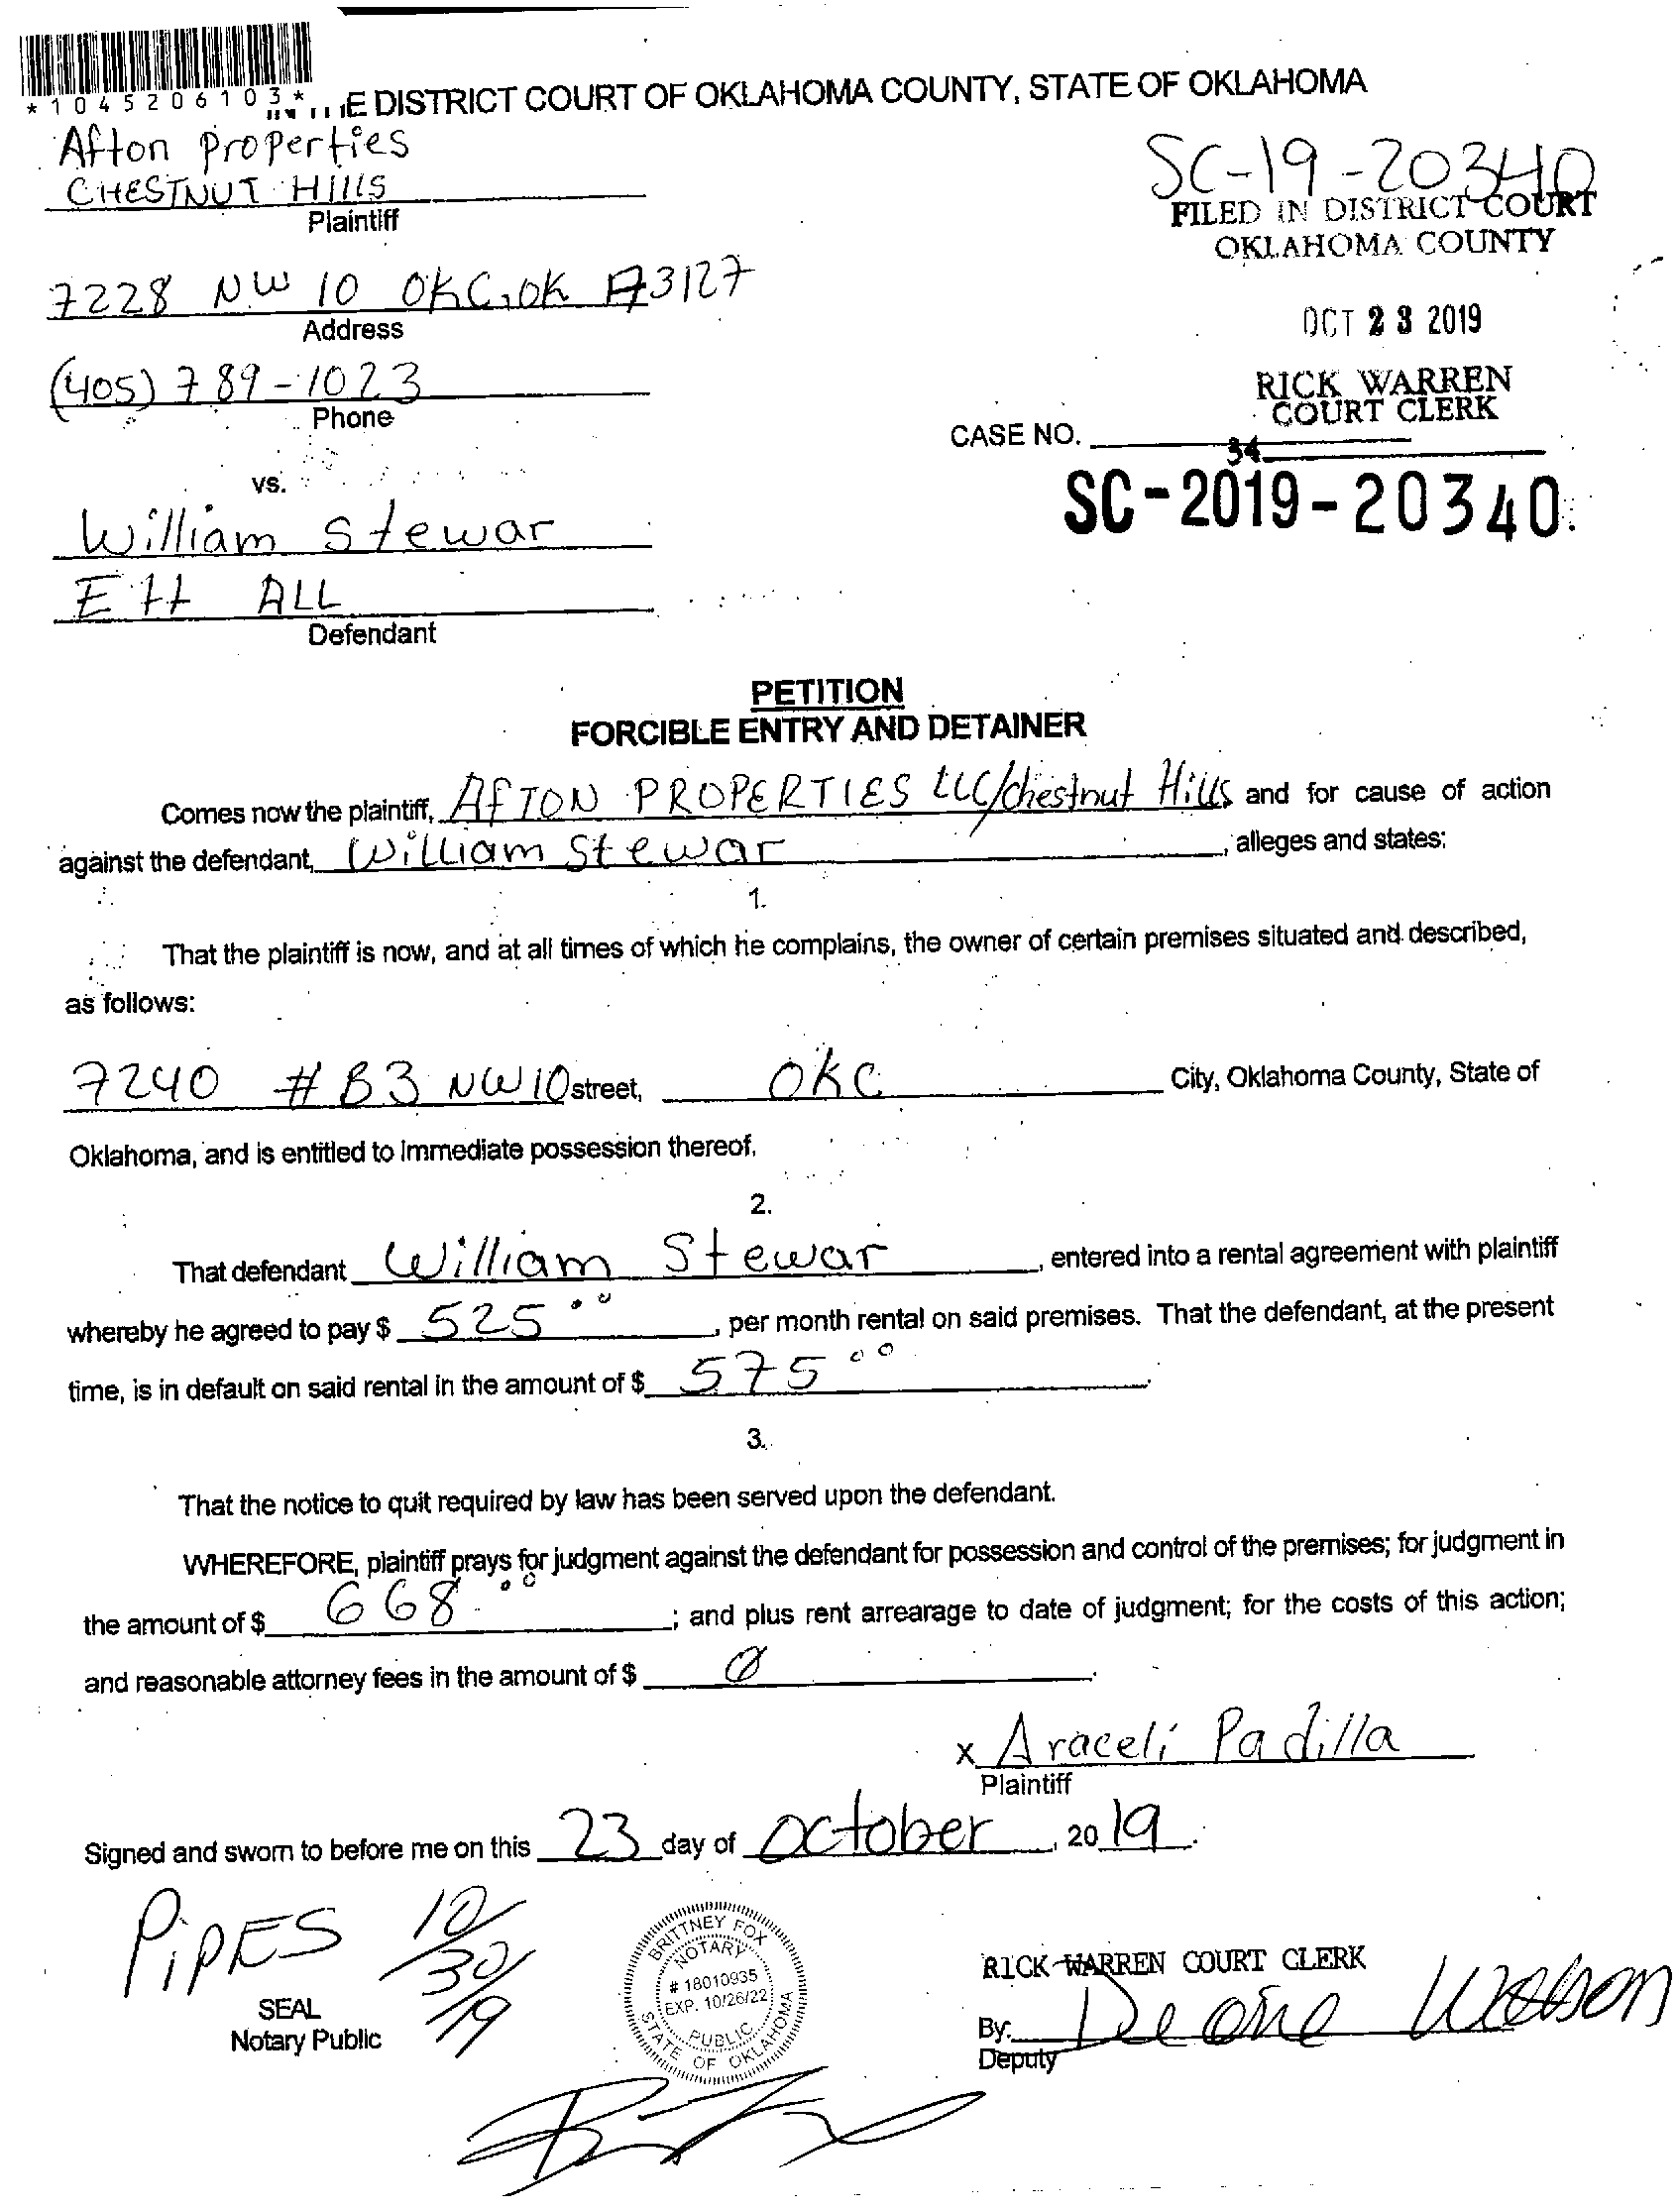 *1045206103*
E DISTRICT COURT OF OKLAHOMA COUNTY, STATE OF OKLAHOMA
Afton properties
CHESTNUT HIllS
Plaintiff
SC-19-20340
FILED IN DISTRICT COURT
OKLAHOMA COUNTY
7228 NW 10 OKC, OK 73127
Address
OCT 23 2019
(405) 789-1023
Phone
RICK WARREN
COURT CLERK
CASE NO.
34
vs.
SC-2019-20340
William Stewar
Ett ALL
Defendant
PETITION
FORCIBLE ENTRY AND DETAINER
Comes now the plaintiff, AfTON PROPERTIES LLC/chestnut Hills and for cause of action
against the defendant, William Stewar, alleges and states:
1.
That the plaintiff is now, and at all times of which he complains, the owner of certain premises situated and described,
as follows:
7240 # B3 NW 10 street, OKC City, Oklahoma County, State of
Oklahoma, and is entitled to immediate possession thereof.
2.
That defendant William Stewar, entered into a rental agreement with plaintiff
whereby he agreed to pay $ 525.00, per month rental on said premises. That the defendant, at the present
time, is in default on said rental in the amount of $ 575 00.
3.
That the notice to quit required by law has been served upon the defendant.
WHEREFORE, plaintiff prays for judgment against the defendant for possession and control of the premises; for judgment in
the amount of $ 668.00; and plus rent arrearage to date of judgment; for the costs of this action;
and reasonable attorney fees in the amount of $ 0.
x Araceli Padilla
Plaintiff
Signed and sworn to before me on this 23 day of October, 20 19.
PiPES 10/30/19
SEAL
Notary Public
BRITTNEY FOX
NOTARY
# 18010935
EXP. 10/26/22
PUBLIC
STATE OF OKLAHOMA
RICK WARREN COURT CLERK
By:
Deputy